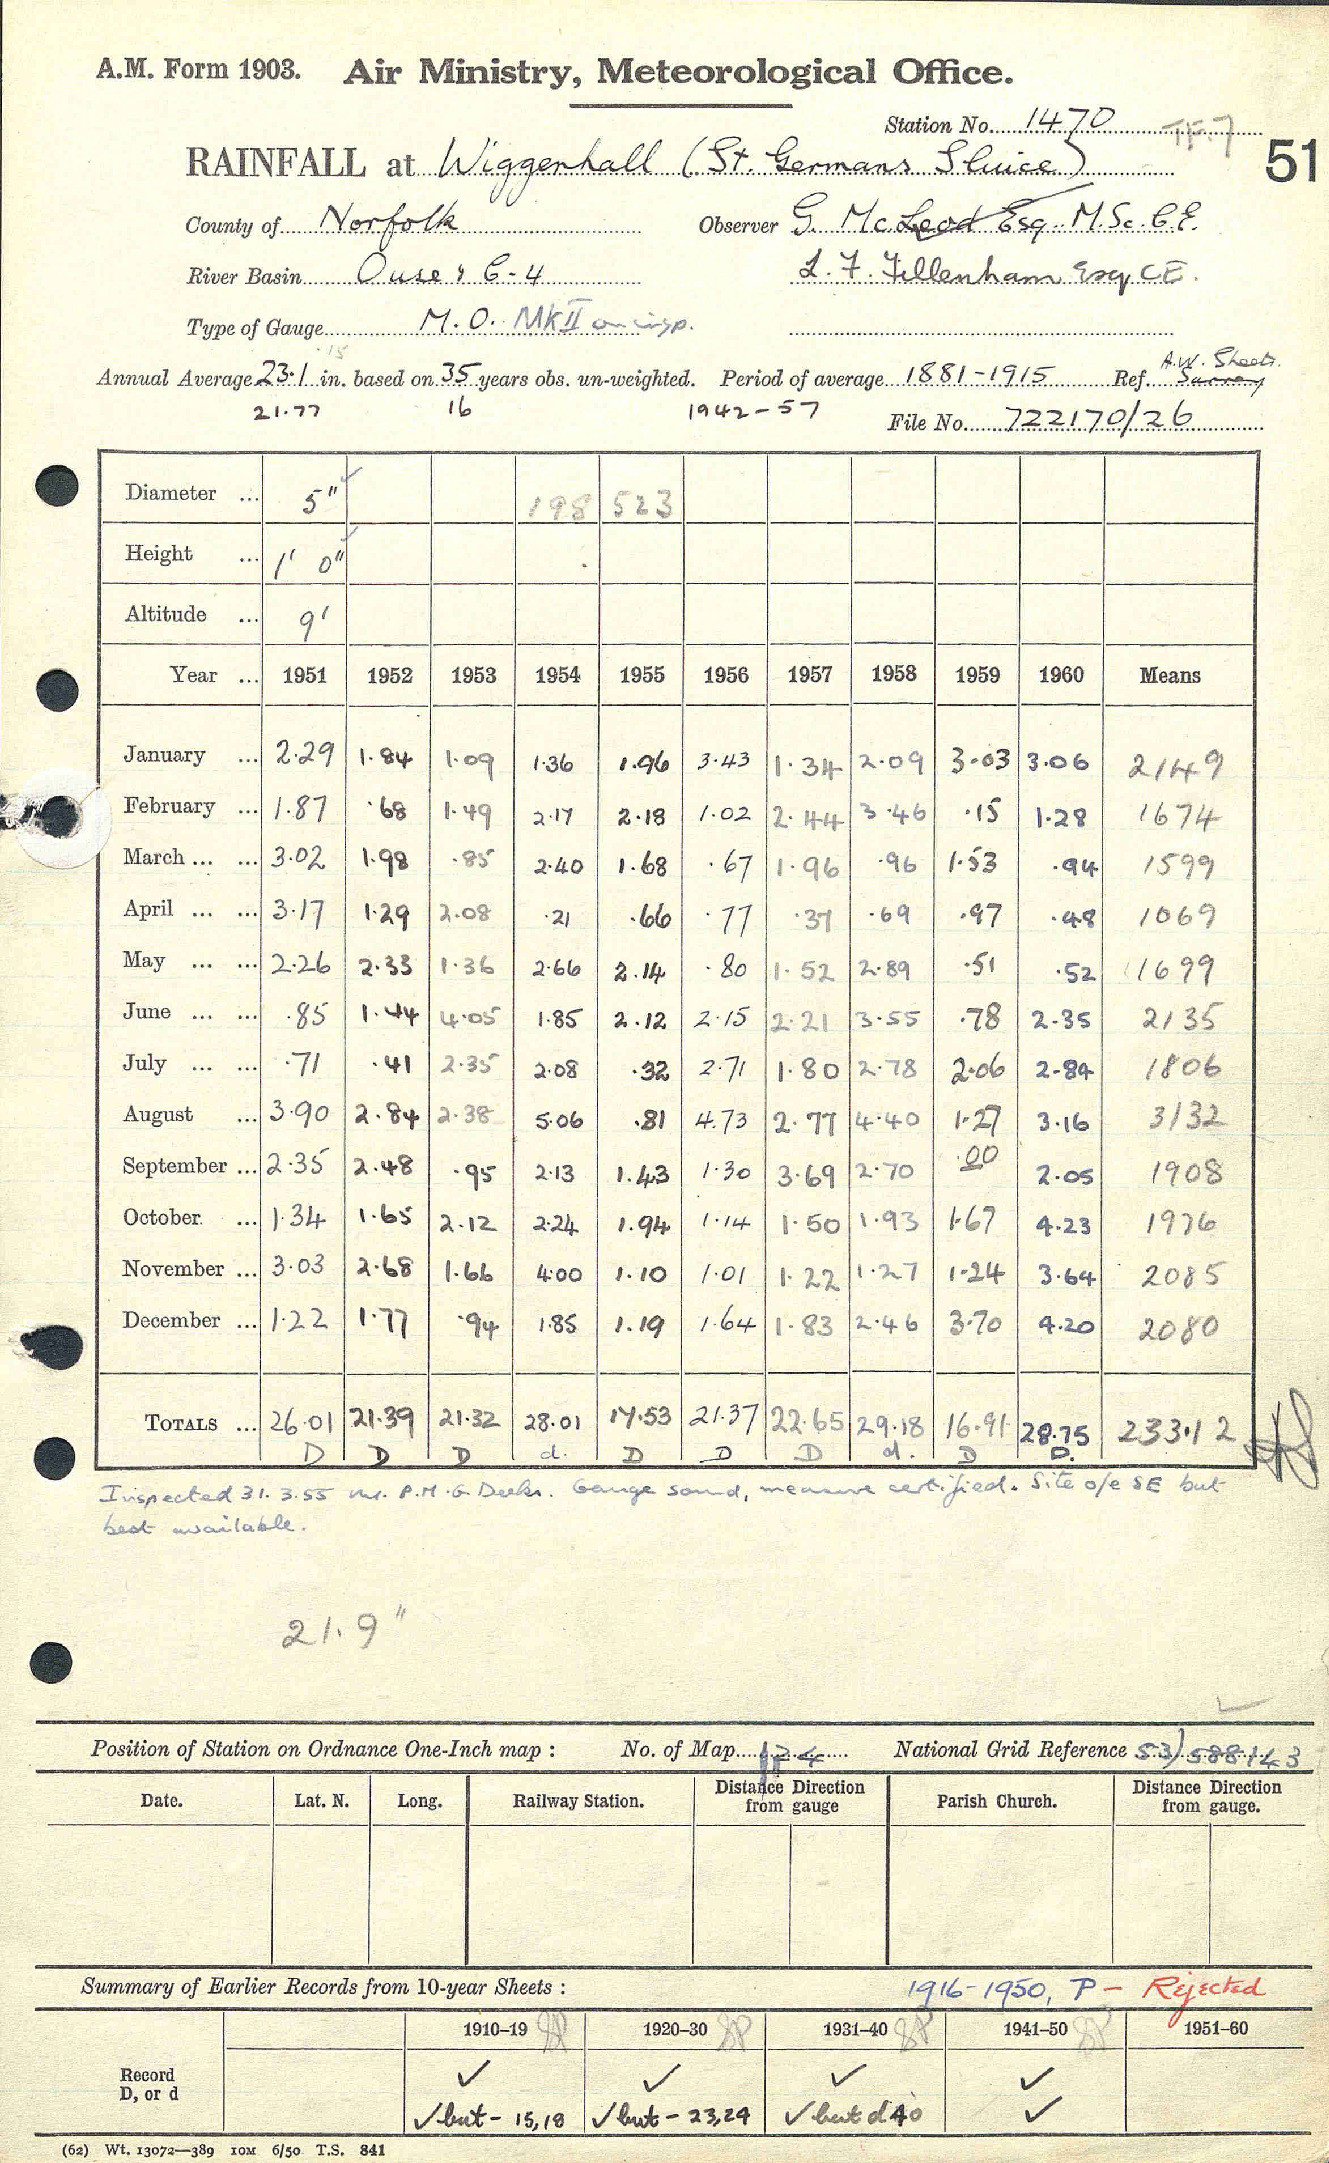 A.M. Form 1903. Air Ministry, Meteorological Office.
Station No. 1470 TF.7
RAINFALL at Wiggenhall (St. Germans Sluice) 51
County of Norfolk Observer G. McLeod Esq. M.Sc. C.E.
River Basin Ouse & C-4 L. F. Fillenham Esq. C.E.
Type of Gauge M.O. MkII on insp.
.15
Annual Average 23.1 in. based on 35 years obs. un-weighted. Period of average 1881-1915 Ref. A.W. Sheets. Survey
21.77 16 1942-57
File No. 722170/26
Diameter ... 5" 198 523
Height ... 1' 0"
Altitude ... 9'
Year ... 1951 1952 1953 1954 1955 1956 1957 1958 1959 1960 Means
January ... 2.29 1.84 1.09 1.36 1.96 3.43 1.34 2.09 3.03 3.06 2149
February ... 1.87 .68 1.49 2.17 2.18 1.02 2.44 3.46 .15 1.28 1674
March ... ... 3.02 1.98 .85 2.40 1.68 .67 1.96 .96 1.53 .94 1599
April ... ... 3.17 1.29 2.08 .21 .66 .77 .37 .69 .97 .48 1069
May ... ... 2.26 2.33 1.36 2.66 2.14 .80 1.52 2.89 .51 .52 1699
June ... ... .85 1.44 4.05 1.85 2.12 2.15 2.21 3.55 .78 2.35 2135
July ... ... .71 .41 2.35 2.08 .32 2.71 1.80 2.78 2.06 2.84 1806
August ... 3.90 2.84 2.38 5.06 .81 4.73 2.77 4.40 1.27 3.16 3132
September ... 2.35 2.48 .95 2.13 1.43 1.30 3.69 2.70 .00 2.05 1908
October. ... 1.34 1.65 2.12 2.24 1.94 1.14 1.50 1.93 1.67 4.23 1976
November ... 3.03 2.68 1.66 4.00 1.10 1.01 1.22 1.27 1.24 3.64 2085
December ... 1.22 1.77 .94 1.85 1.19 1.64 1.83 2.46 3.70 4.20 2080
TOTALS ... 26.01 21.39 21.32 28.01 17.53 21.37 22.65 29.18 16.91 28.75 233.12
D D D d. D D D d. D D.
Inspected 31.3.55 Mr. P.M.G. Deeks. Gauge sound, measure certified. Site o/e SE but
best available.
21.9"
Position of Station on Ordnance One-Inch map : No. of Map 124 National Grid Reference 53/588143
Date. Lat. N. Long. Railway Station. Distance Direction from gauge Parish Church. Distance Direction from gauge.
Summary of Earlier Records from 10-year Sheets : 1916-1950, P - Rejected
1910–19 1920–30 1931–40 1941–50 1951–60
Record ✓ ✓ ✓ ✓
D, or d ✓ but - 15,18 ✓ but - 23,24 ✓ but d 40 ✓
(62) Wt. 13072—389 10M 6/50 T.S. 841